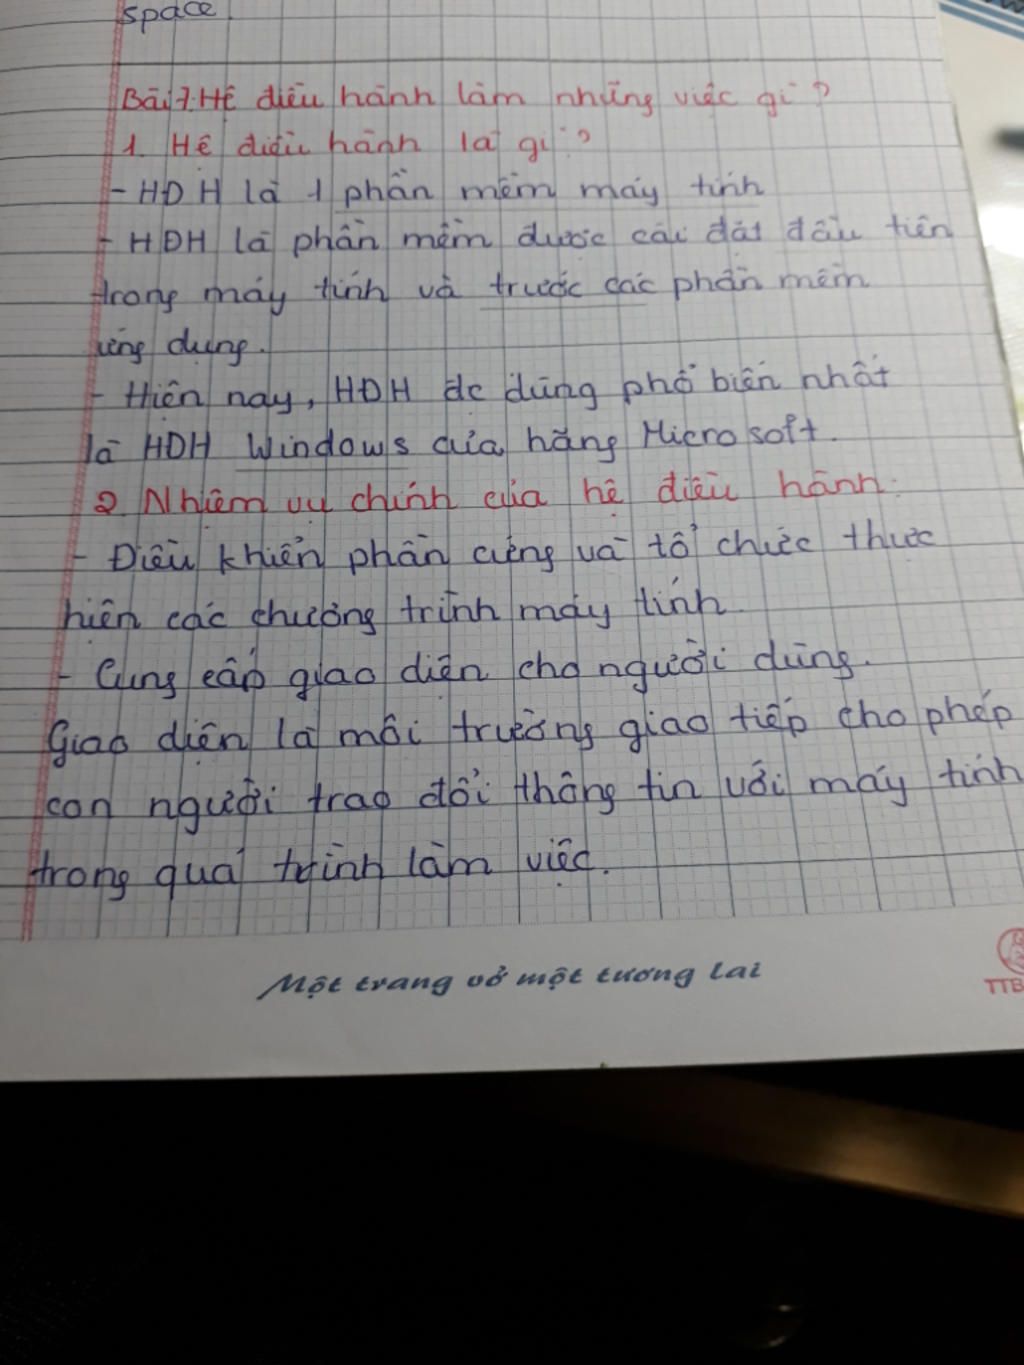 space
Bài 7: Hệ điều hành làm những việc gì?
1. Hệ điều hành là gì?
- HĐH là 1 phần mềm máy tính
- HĐH là phần mềm được cài đặt đầu tiên
trong máy tính và trước các phần mềm
ứng dụng.
- Hiện nay, HĐH đc dùng phổ biến nhất
là HĐH Windows của hãng Microsoft.
2. Nhiệm vụ chính của hệ điều hành:
- Điều khiển phần cứng và tổ chức thực
hiện các chương trình máy tính
- Cung cấp giao diện cho người dùng.
Giao diện là môi trường giao tiếp cho phép
con người trao đổi thông tin với máy tính
trong quá trình làm việc.
Một trang vở một tương lai
TTB